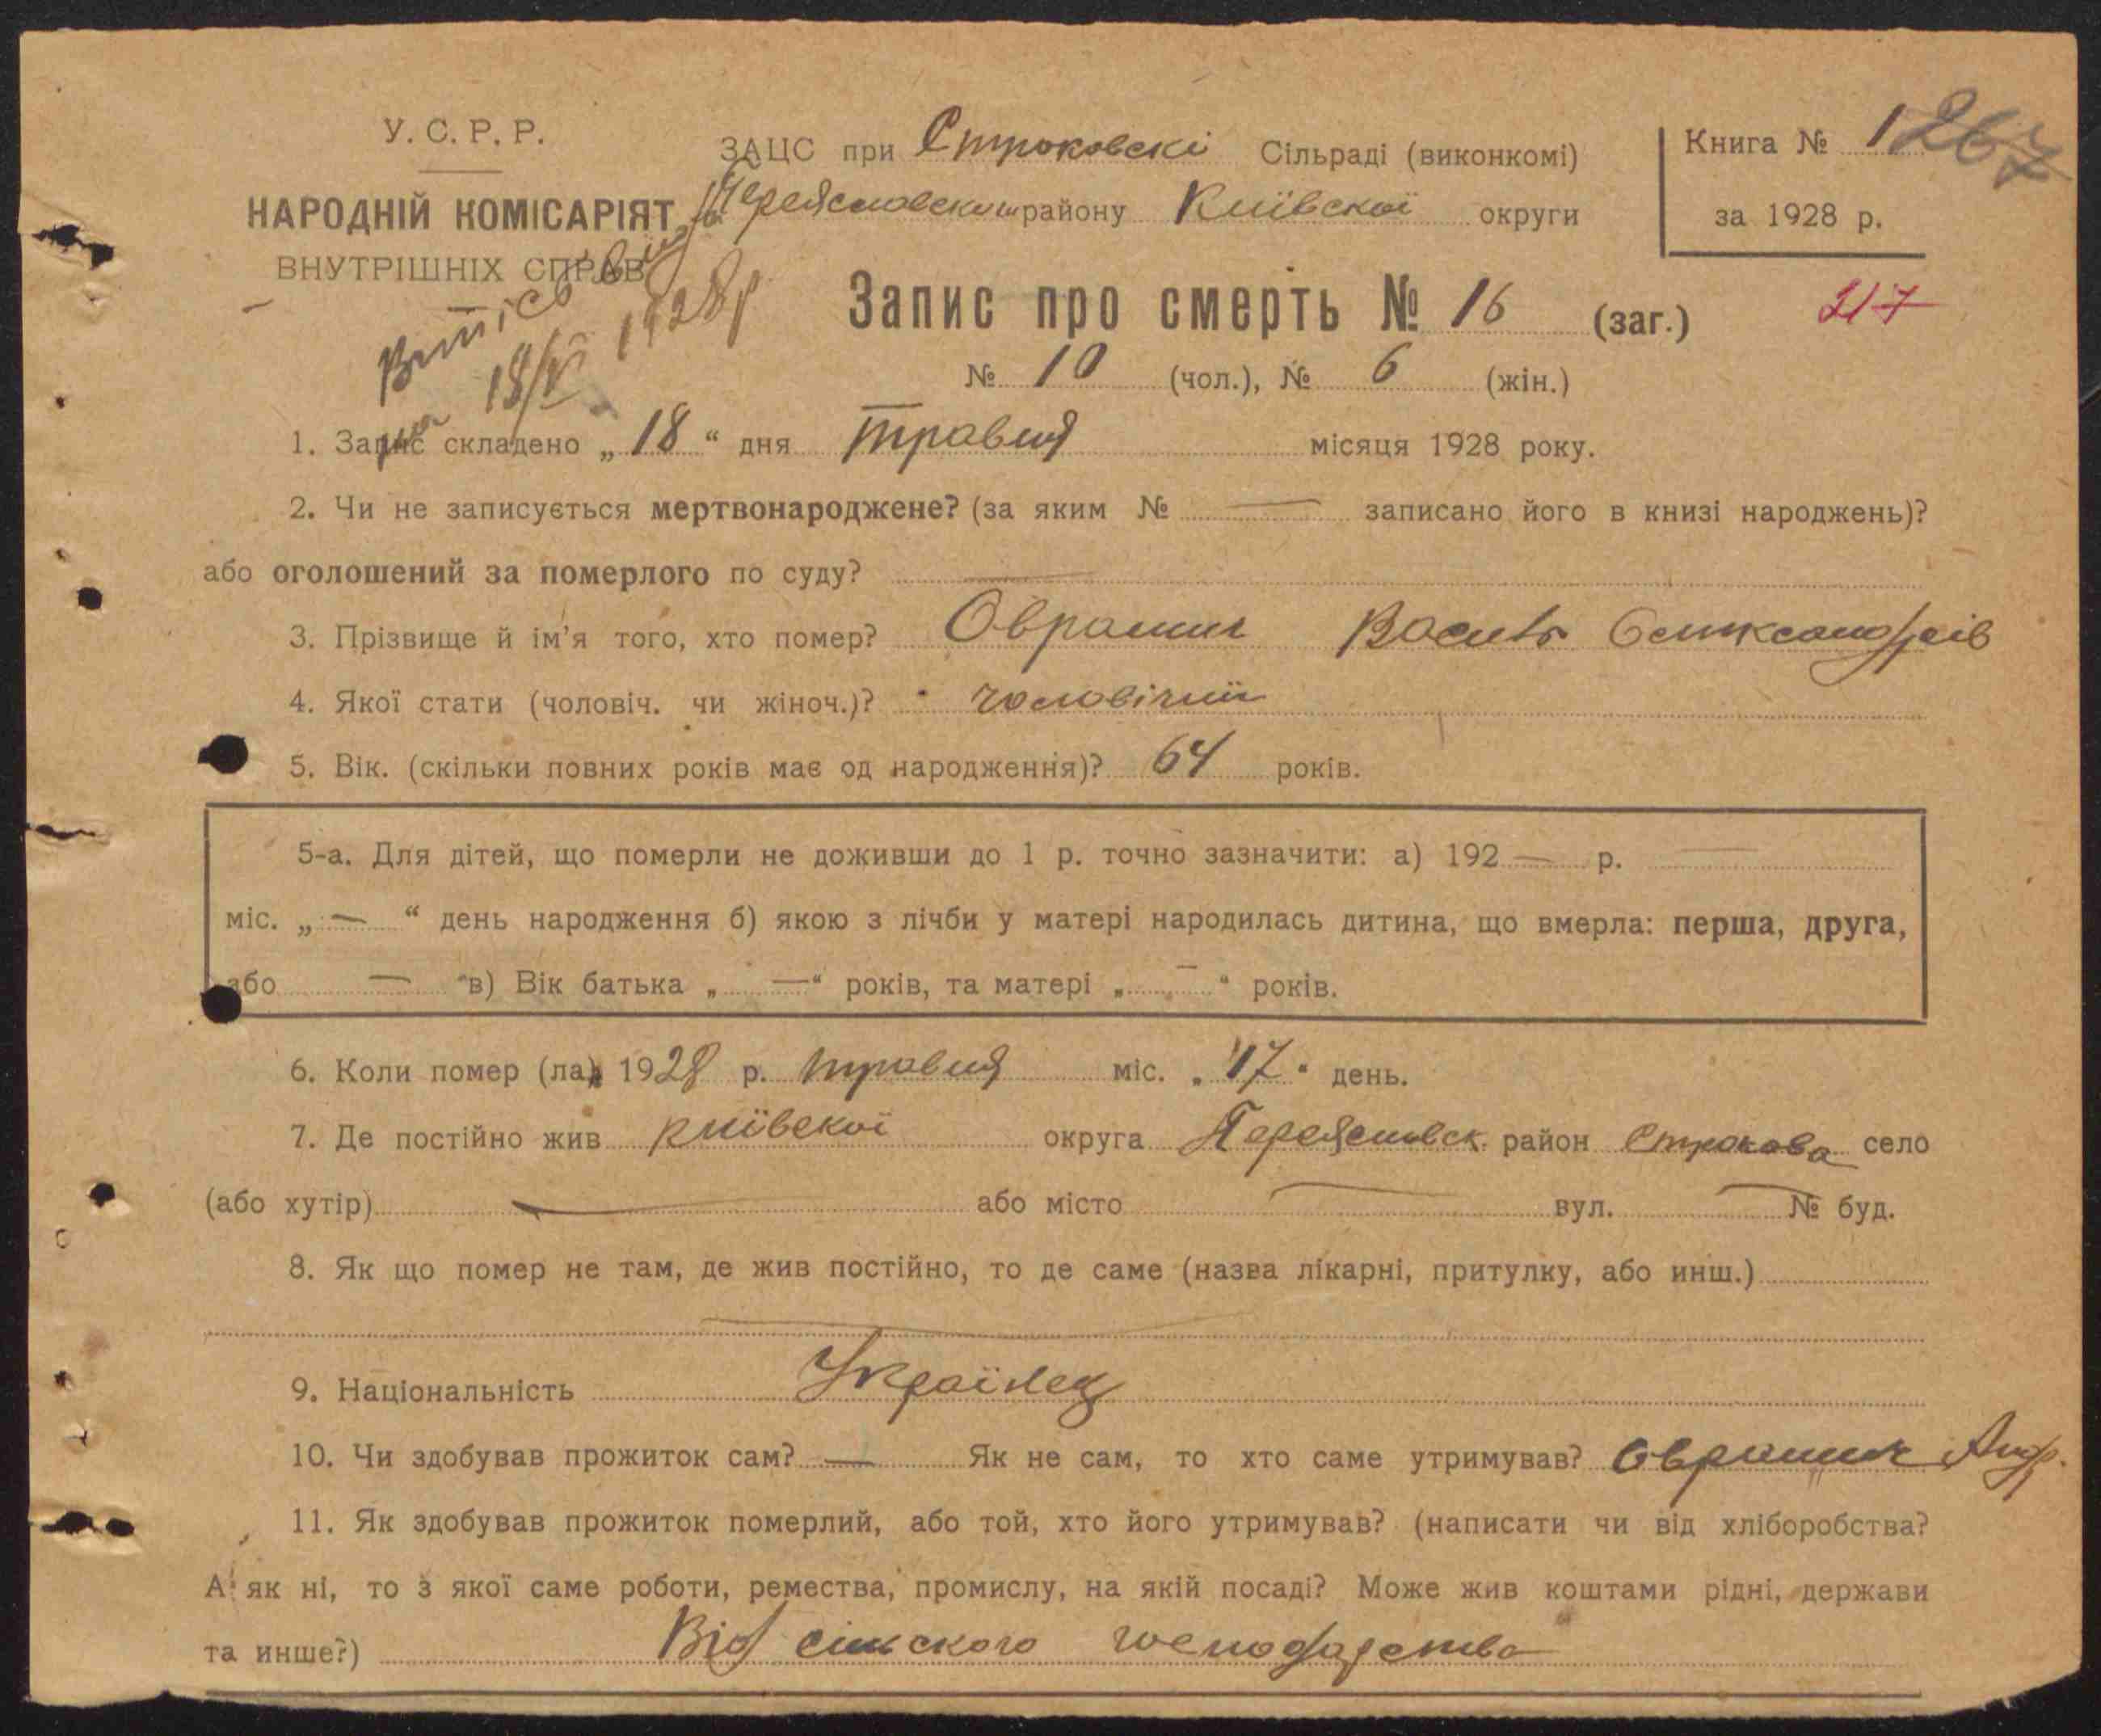 У. С. Р. Р.
НАРОДНІЙ КОМІСАРІЯТ
ВНУТРІШНІХ СПРАВ
ЗАЦС при Строковскі Сільраді (виконкомі)
району Київскої округи
Книга № 1 267
за 1928 р.
217
18/V 1928р
Запис про смерть № 16 (заг.)
№ 10 (чол.), № 6 (жін.)
1. Запис складено „ 18 “ дня травня місяця 1928 року.
2. Чи не записується мертвонароджене? (за яким № — записано його в книзі народжень)?
або оголошений за померлого по суду? —
3. Прізвище й ім'я того, хто помер? Василь
4. Якої стати (чоловіч. чи жіноч.)? чоловічий
5. Вік. (скільки повних років має од народження)? 64 років.
5-а. Для дітей, що померли не доживши до 1 р. точно зазначити: а) 192 — р. —
міс. „ — “ день народження б) якою з лічби у матері народилась дитина, що вмерла: перша, друга,
або — в) Вік батька „ — “ років, та матері „ — “ років.
6. Коли помер (ла) 1928 р. травня міс. „ 17 “ день.
7. Де постійно жив Київскої округа Переяславск. район Строкова село
(або хутір) — або місто — вул. — № буд.
8. Як що помер не там, де жив постійно, то де саме (назва лікарні, притулку, або инш.)
—
9. Національність Українец
10. Чи здобував прожиток сам? — Як не сам, то хто саме утримував?
11. Як здобував прожиток померлий, або той, хто його утримував? (написати чи від хліборобства?
А як ні, то з якої саме роботи, ремества, промислу, на якій посаді? Може жив коштами рідні, держави
та инше?) Від сільского господарства